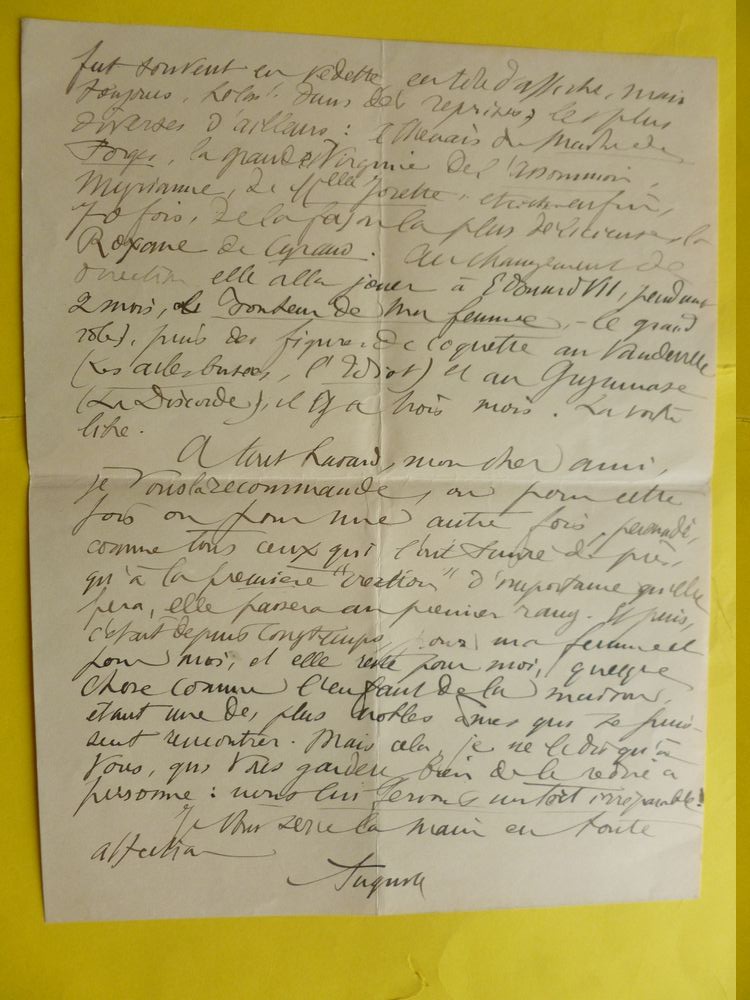 fut souvent en vedette, en tête d'affiche, mais
toujours, hélas! dans des reprises, les plus
diverses d'ailleurs : Athénaïs du Maître de
Forges, la grande Virginie de l'Assommoir,
Myrianne, de Mlle Josette, et enfin,
70 fois, de la façon la plus délicieuse, la
Roxane de Cyrano. Au changement de
direction elle alla jouer à Edouard VII, pendant
2 mois, le Bonheur de ma femme, - le grand
rôle), puis des figures de coquette au Vaudeville
(Les ailes brisées, l'Idiot) et au Gymnase
(La Discorde), il y a trois mois. La voilà
libre.
A tout hasard, mon cher ami,
je vous la recommande, ou pour cette
fois ou pour une autre fois, persuadé,
comme tous ceux qui l'ont suivie de près,
qu'à la première "création" d'importance qu'elle
fera, elle passera au premier rang. Et puis,
c'était depuis longtemps, pour ma femme et
pour moi, et elle reste pour moi, quelque
chose comme l'enfant de la maison,
étant une des plus nobles âmes qui se puis-
sent rencontrer. Mais cela, je ne le dis qu'à
vous, qui vous garderez bien de le redire à
personne : nous lui ferions un tort irréparable!
Je vous serre la main en toute
affection